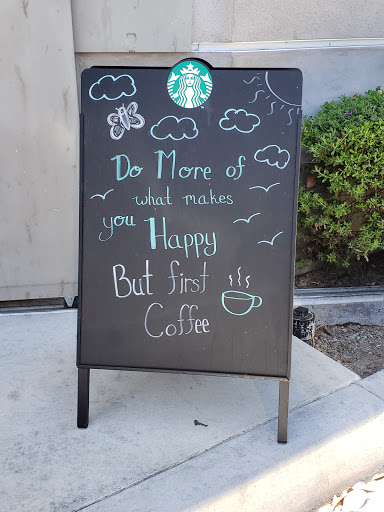 Do More of
what makes
you Happy
But first
Coffee